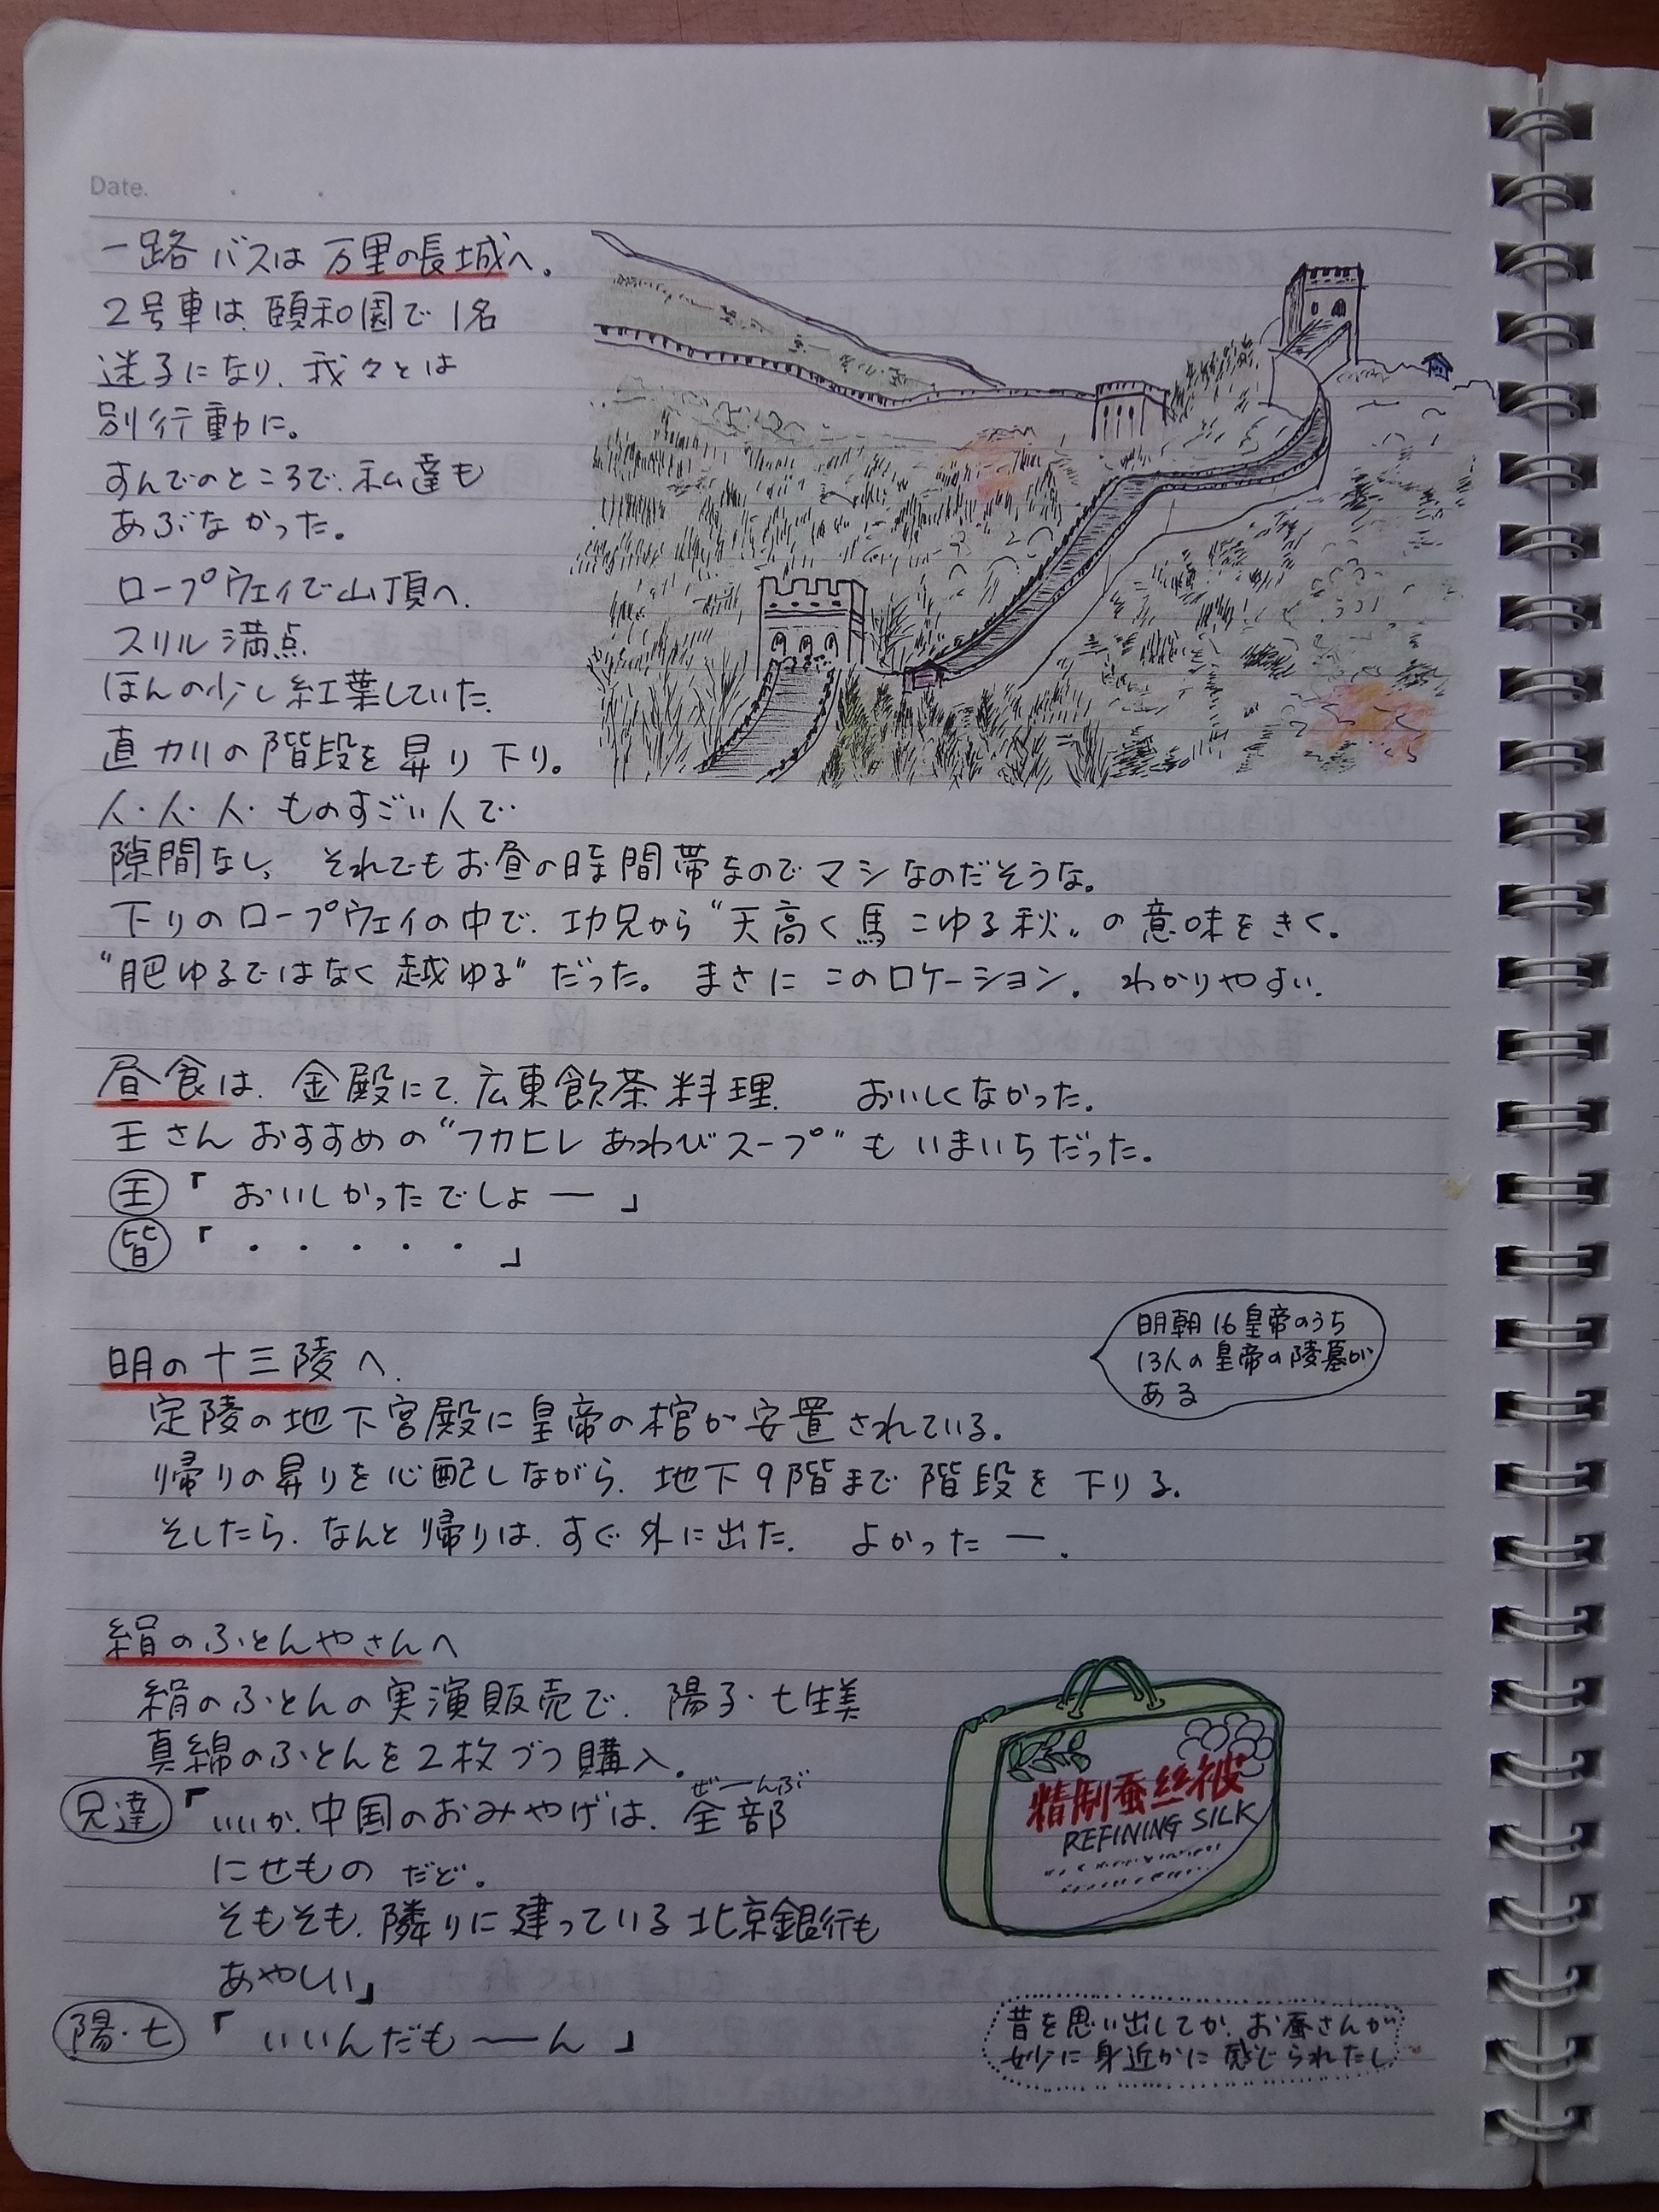 Date.
一路 バスは 万里の長城へ。
2号車は、頤和園で 1名
迷子になり、我々とは
別行動に。
すんでのところで、私達も
あぶなかった。
ロープウェイで山頂へ、
スリル満点
ほんの少し紅葉していた。
直カリの階段を昇り下り。
人・人・人・ものすごい人で・
隙間なし、それでもお昼の時間帯なのでマシなのだそうな。
下りのロープウェイの中で、功兄から“天高く馬こゆる秋„の意味をきく。
“肥ゆるではなく越ゆる”だった。まさにこのロケーション。わかりやすい。
昼食は、金殿にて、広東飲茶料理、おいしくなかった。
王さんおすすめの“フカヒレあわびスープ”もいまいちだった。
王「おいしかったでしょー」
皆「・・・・・」
明朝16皇帝のうち
13人の皇帝の陵墓が
ある
明の十三陵へ、
定陵の地下宮殿に皇帝の棺が安置されている。
帰りの昇りを心配しながら、地下9階まで階段を下りる。
そしたら、なんと帰りは、すぐ外に出た。よかったー。
絹のふとんやさんへ
絹のふとんの実演販売で、陽子・七生美
真綿のふとんを2枚づつ購入。
兄達「いいか、中国のおみやげは、全部
ぜーんぶ
にせものだど。
そもそも、隣りに建っている北京銀行も
あやしい」
陽・七「いいんだも〜ん」
精制蚕丝被
REFINING SILK
昔を思い出してか、お蚕さんが
妙に身近かに感じられたし